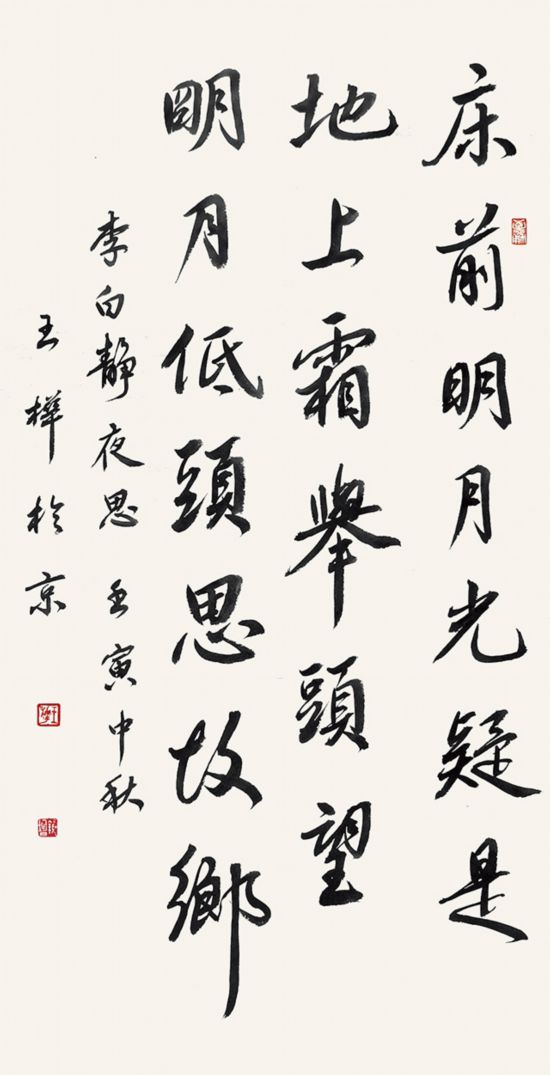 床前明月光疑是
地上霜舉頭望
明月低頭思故鄉
李白静夜思 壬寅中秋
王樺於京